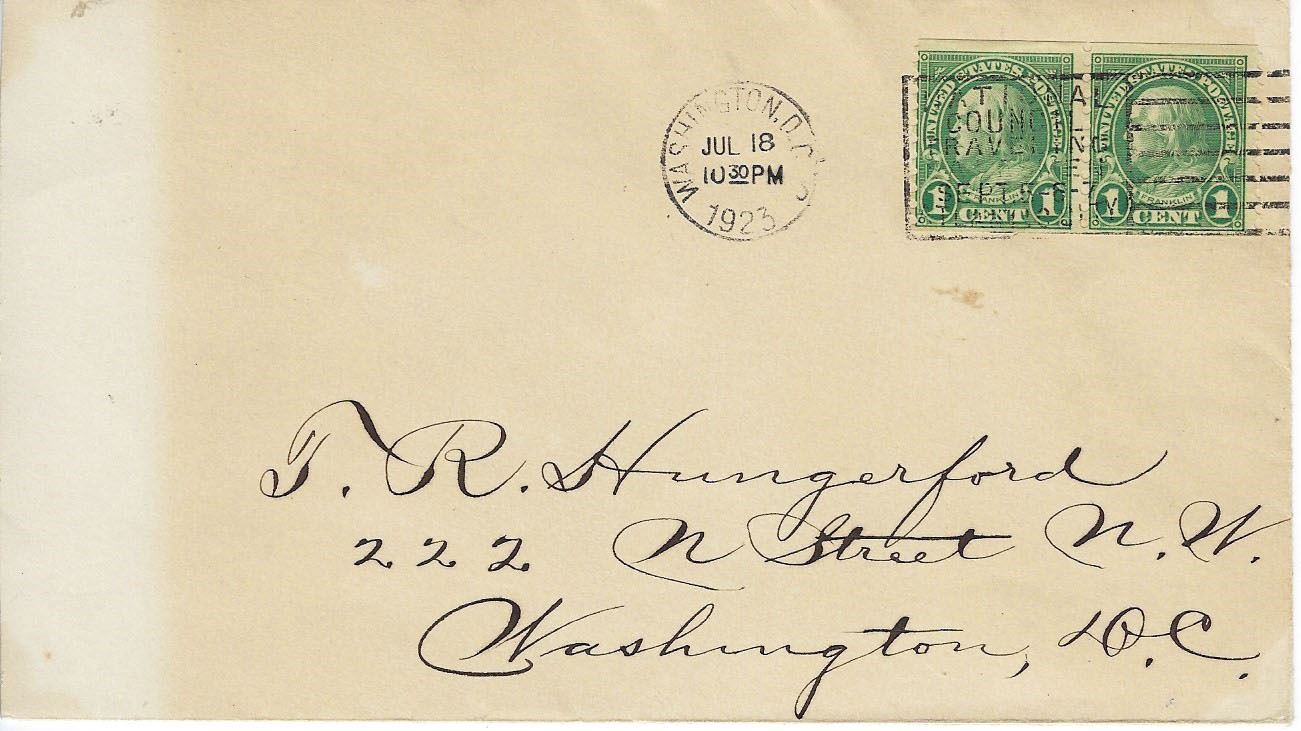 WASHINGTON, D.C.
JUL 18
10 30 PM
1923
COUNCIL
SEPT. 5-6-7
UNITED STATES POSTAGE
FRANKLIN
1 CENT 1
UNITED STATES POSTAGE
FRANKLIN
1 CENT 1
T. R. Hungerford
222 N Street N. W.
Washington, D.C.